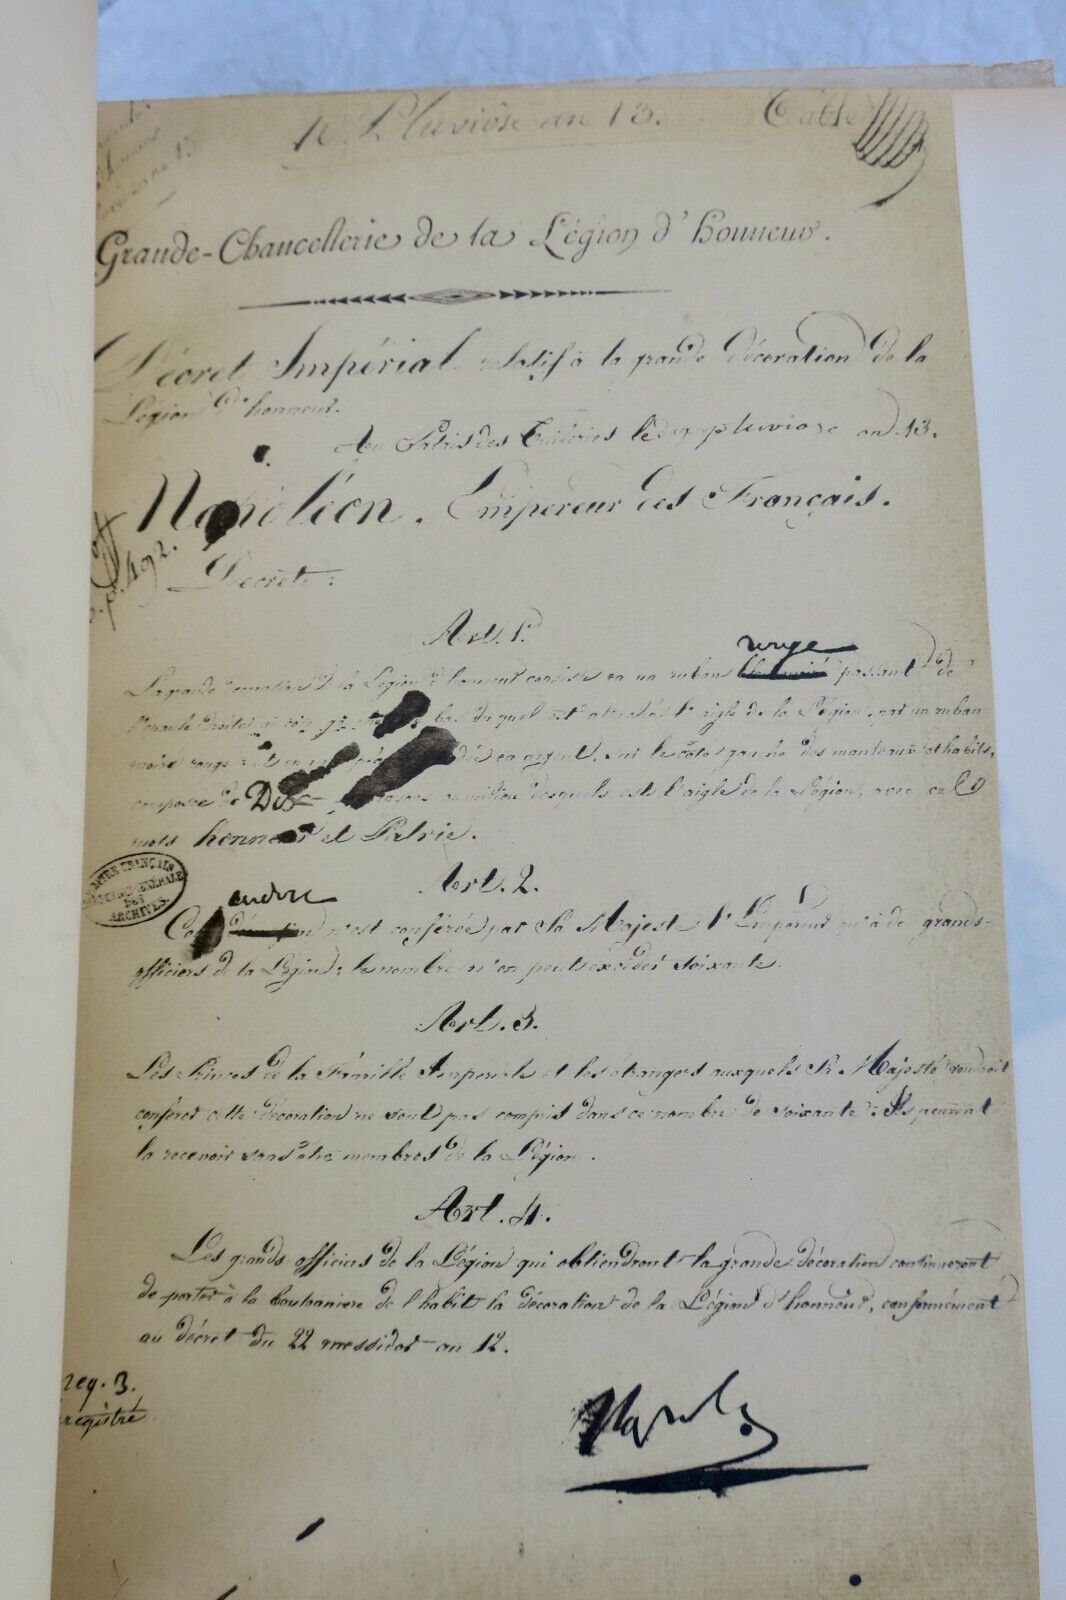 10 Pluviôse an 13.
Grande-Chancellerie de la Légion d'honneur.
Décret Impérial relatif à la grande décoration de la
Légion d'honneur.
Au Palais des Tuileries le dix pluviose an 13.
Napoléon, Empereur des Français.
p. 492.
Décrète:
Art. 1er
rouge
La grande décoration de la Légion d'honneur consiste en un ruban passant de
l'épaule droite au côté gauche bas duquel est attaché l'aigle de la Légion, par un ruban
moiré rouge en argent, sur le côté gauche des manteaux et habits,
composée de Dix au milieu desquels est l'aigle de la Légion, avec ces
mots honneur et Patrie.
ARCHIVES FRANÇAIS
GÉNÉRALE
DES
ARCHIVES.
Art. 2.
cordon
n'est conférée par Sa Majesté l'Empereur qu'à de grands-
officiers de la Légion; le nombre n'en peut excéder soixante.
Art. 3.
Les Princes de la Famille Impériale et les étrangers auxquels Sa Majesté voudroit
conférer cette décoration ne sont pas compris dans ce nombre de soixante: Ils peuvent
la recevoir sans être membres de la Légion.
Art. 4.
Les grands officiers de la Légion qui obtiendront la grande décoration continueront
de porter à la boutonniere de l'habit la décoration de la Légion d'honneur, conformément
au décret du 22 messidor an 12.
reg. 3.
enregistré